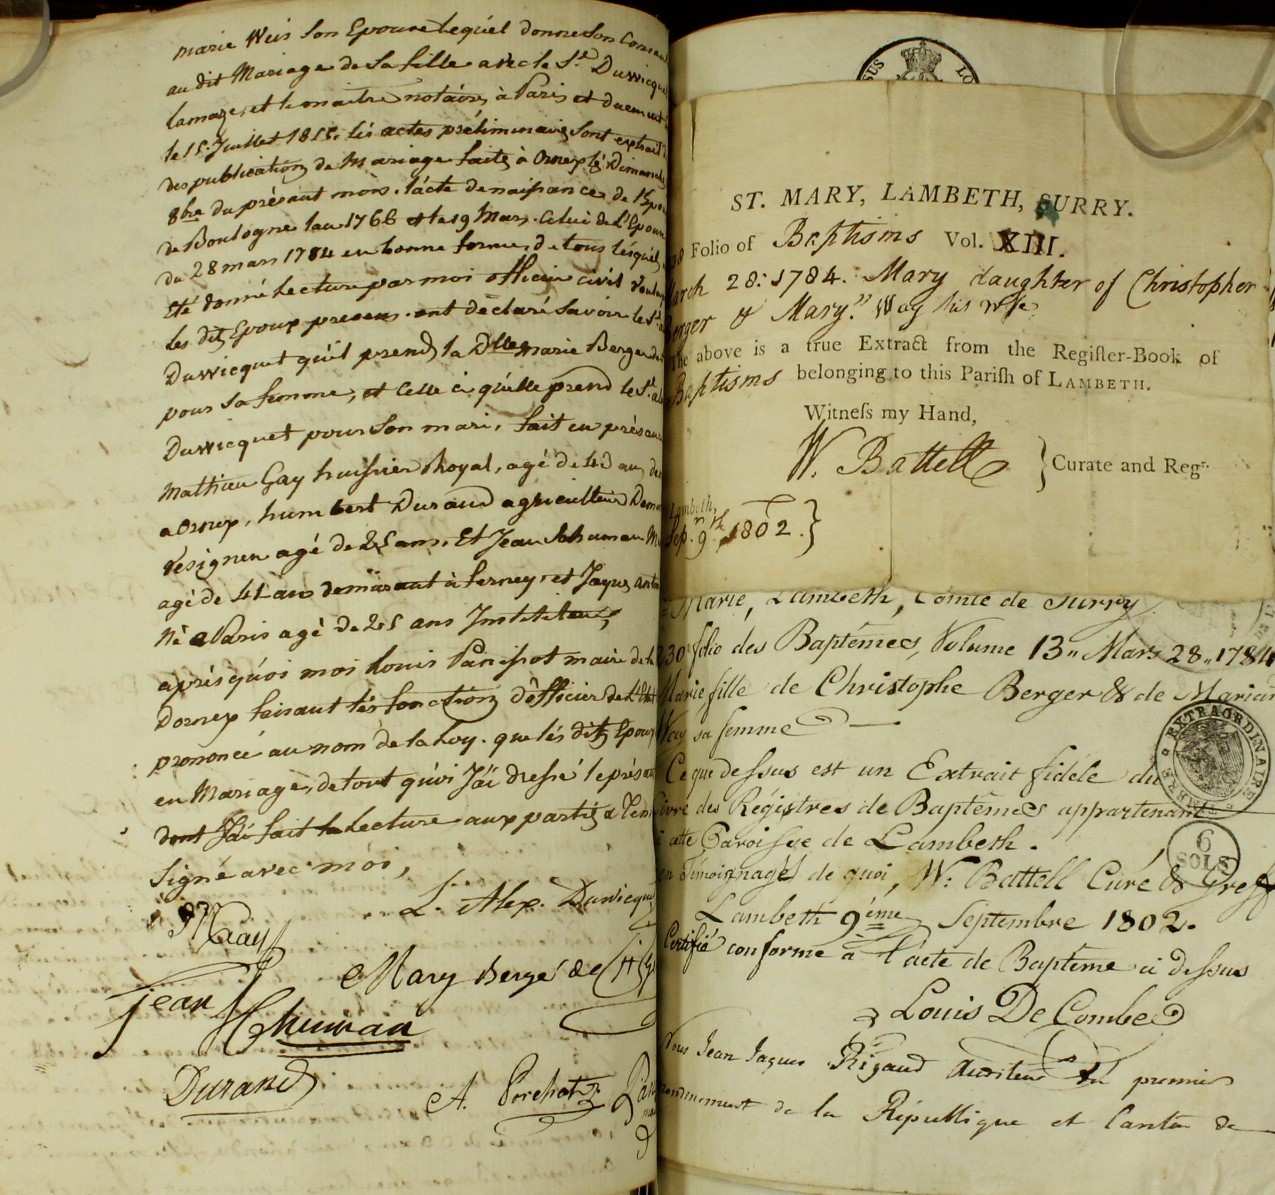 marie Weis son Epouse lequel donne son consen
au dit Mariage de sa fille avec le Sr. Duvicquet
lamaze, et le maitre notaire à Paris et duement
le 15 Juillet 1815. lés actes préliminaires sont extrait
des publications de Mariage faites à Ornex lés Dimanches
8bre du présant mois. l'acte de naissance de l'Epoux
de Boulogne lan 1766 et le 19 Mars. Celui de l'Epouse
du 28 mars 1784 en bonne forme, de tous lésquels
Eté donné lecture par moi officier civil
les dits Epoux presens. ont déclaré savoir le Sr.
Duvicquet qu'il prend la Dlle marie Berger
pour sa femme, et Celle ci qu'elle prend le Sr.
Duvicquet pour son mari, fait en présence
Mathieu Gay huissier Royal, agé de 43 ans
a Ornex, humbert Durand agriculteur
résignen agé de 25 ans. Et Jean Schuman
agé de 41 ans demeurant à ferney, et Jaques
Né a Paris agé de 25 ans Instituteur,
aprés quoi moi Louis Panissot maire de la
Dornex faisant lés fonctions d'officier de l'Etat
prononcé au nom de la Loy. que lés dits Epoux
en Mariage, de tout quoi J'ai dressé le présent
dont J'ai fait la lecture aux parties & Tem
Signé avec moi,
L. Alex. Duvicquet
MGay
Mary Berger de
Jean Schuman
Durand
A. Porchat
ST. MARY, LAMBETH, SURRY.
Folio of Baptisms Vol. XIII.
March 28: 1784. Mary daughter of Christopher
Berger & Mary Way his wife
The above is a true Extract from the Register-Book of
Baptisms belonging to this Parish of LAMBETH.
Witness my Hand,
W. Battell } Curate and Regr.
Lambeth,
Sep. 9th, 1802. }
Marie, Lambeth, Comté de Surry.
230 folio des Baptêmes, Volume 13,, Mars 28,, 1784
Marie fille de Christophe Berger & de Marian
Way sa femme
Ce que dessus est un Extrait fidéle du
Livre des Régistres de Baptêmes appartenant
à cette Paroisse de Lambeth.
en témoignage de quoi, W. Battell Curé & Greff
Lambeth 9ème Septembre 1802.
Certifié conforme à l'acte de Baptême ci dessus
Louis De Combe
Nous Jean Jaques Rigaud Auditeur du premier
de la République et Canton de
EXTRAORDINAIRE
6
SOLS